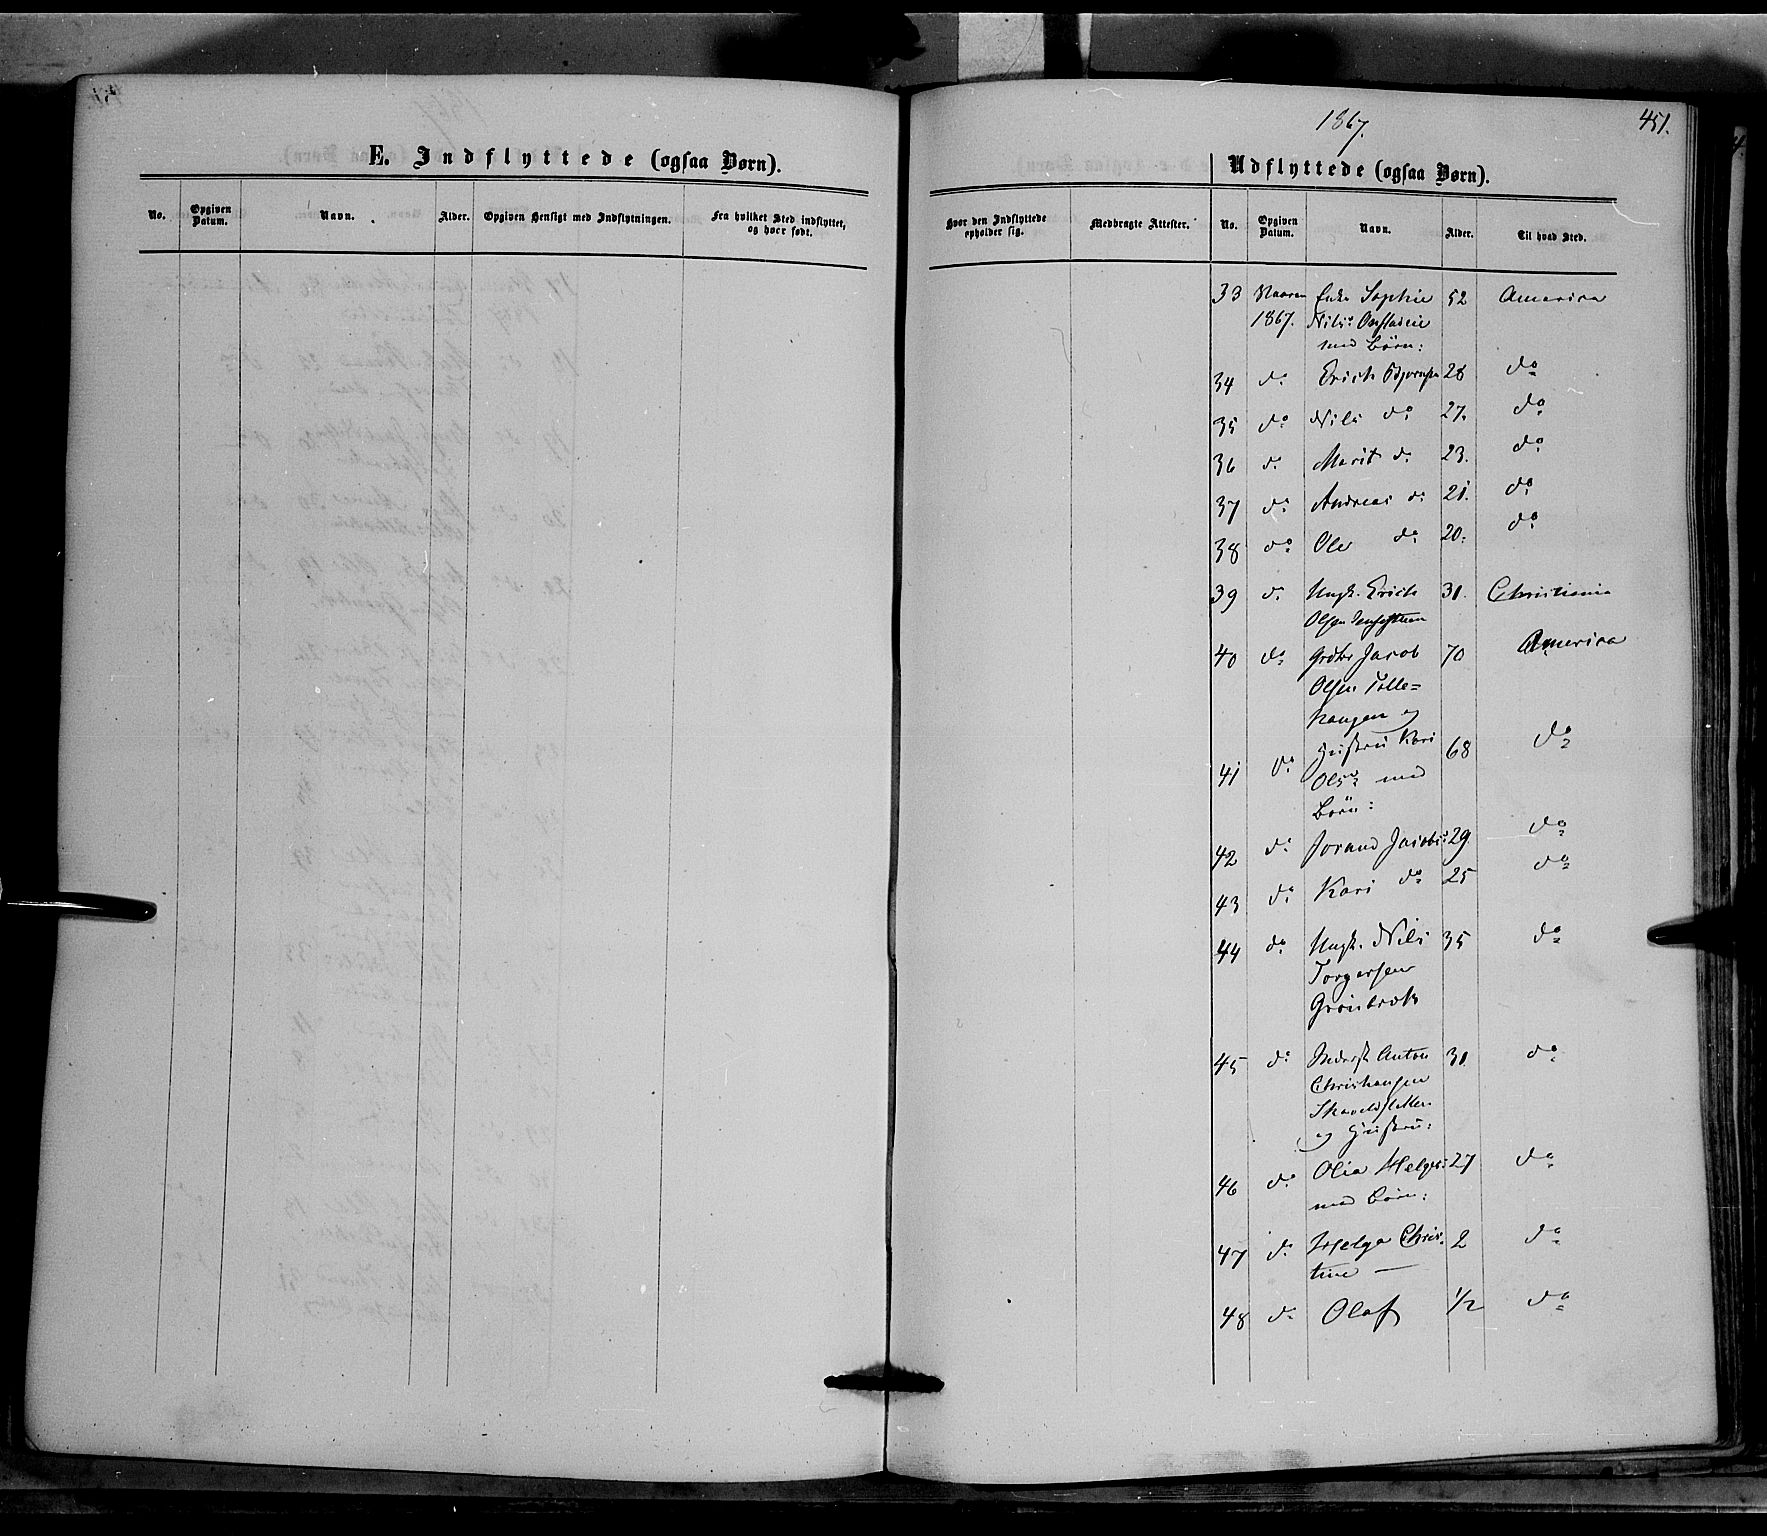 1867.
451.
E. Indflyttede (ogsaa Børn).
Udflyttede (ogsaa Børn).
No. Opgiven Datum. Navn. Alder. Opgiven Hensigt med Indflytningen. Fra hvilket Sted indflyttet, og hvor født. Hvor den Indflyttede opholder sig. Medbragte Attester. No. Opgiven Datum. Navn. Alder. Til hvad Sted.
33 Vaaren Enke Sophie 52 America
1867. Nilsd.
med Børn:
34 do Erich 28 do
35 do Nils do 27. do
36 do Marit do 23. do
37 do Andreas do 21. do
38 do Ole do 20. do
39 do Ungk. Erich 31. Christiania
Olsen
40 do Jacob 70 America
Olsen Tolle=
haugen og
41 do Hustru Kari 68 do
Olsd. med
Børn:
42 do Jorand Jacobsd 29 do
43 do Kari do 25 do
44 do Ungk. Nils 35 do
Torgersen
45 do Anton 31 do
Christiansen
og Hustru:
46 do Olia Helgesd: 27 do
med Børn:
47 do Helga Chris= 2 do
tine —
48 do Olaf 1/2 do